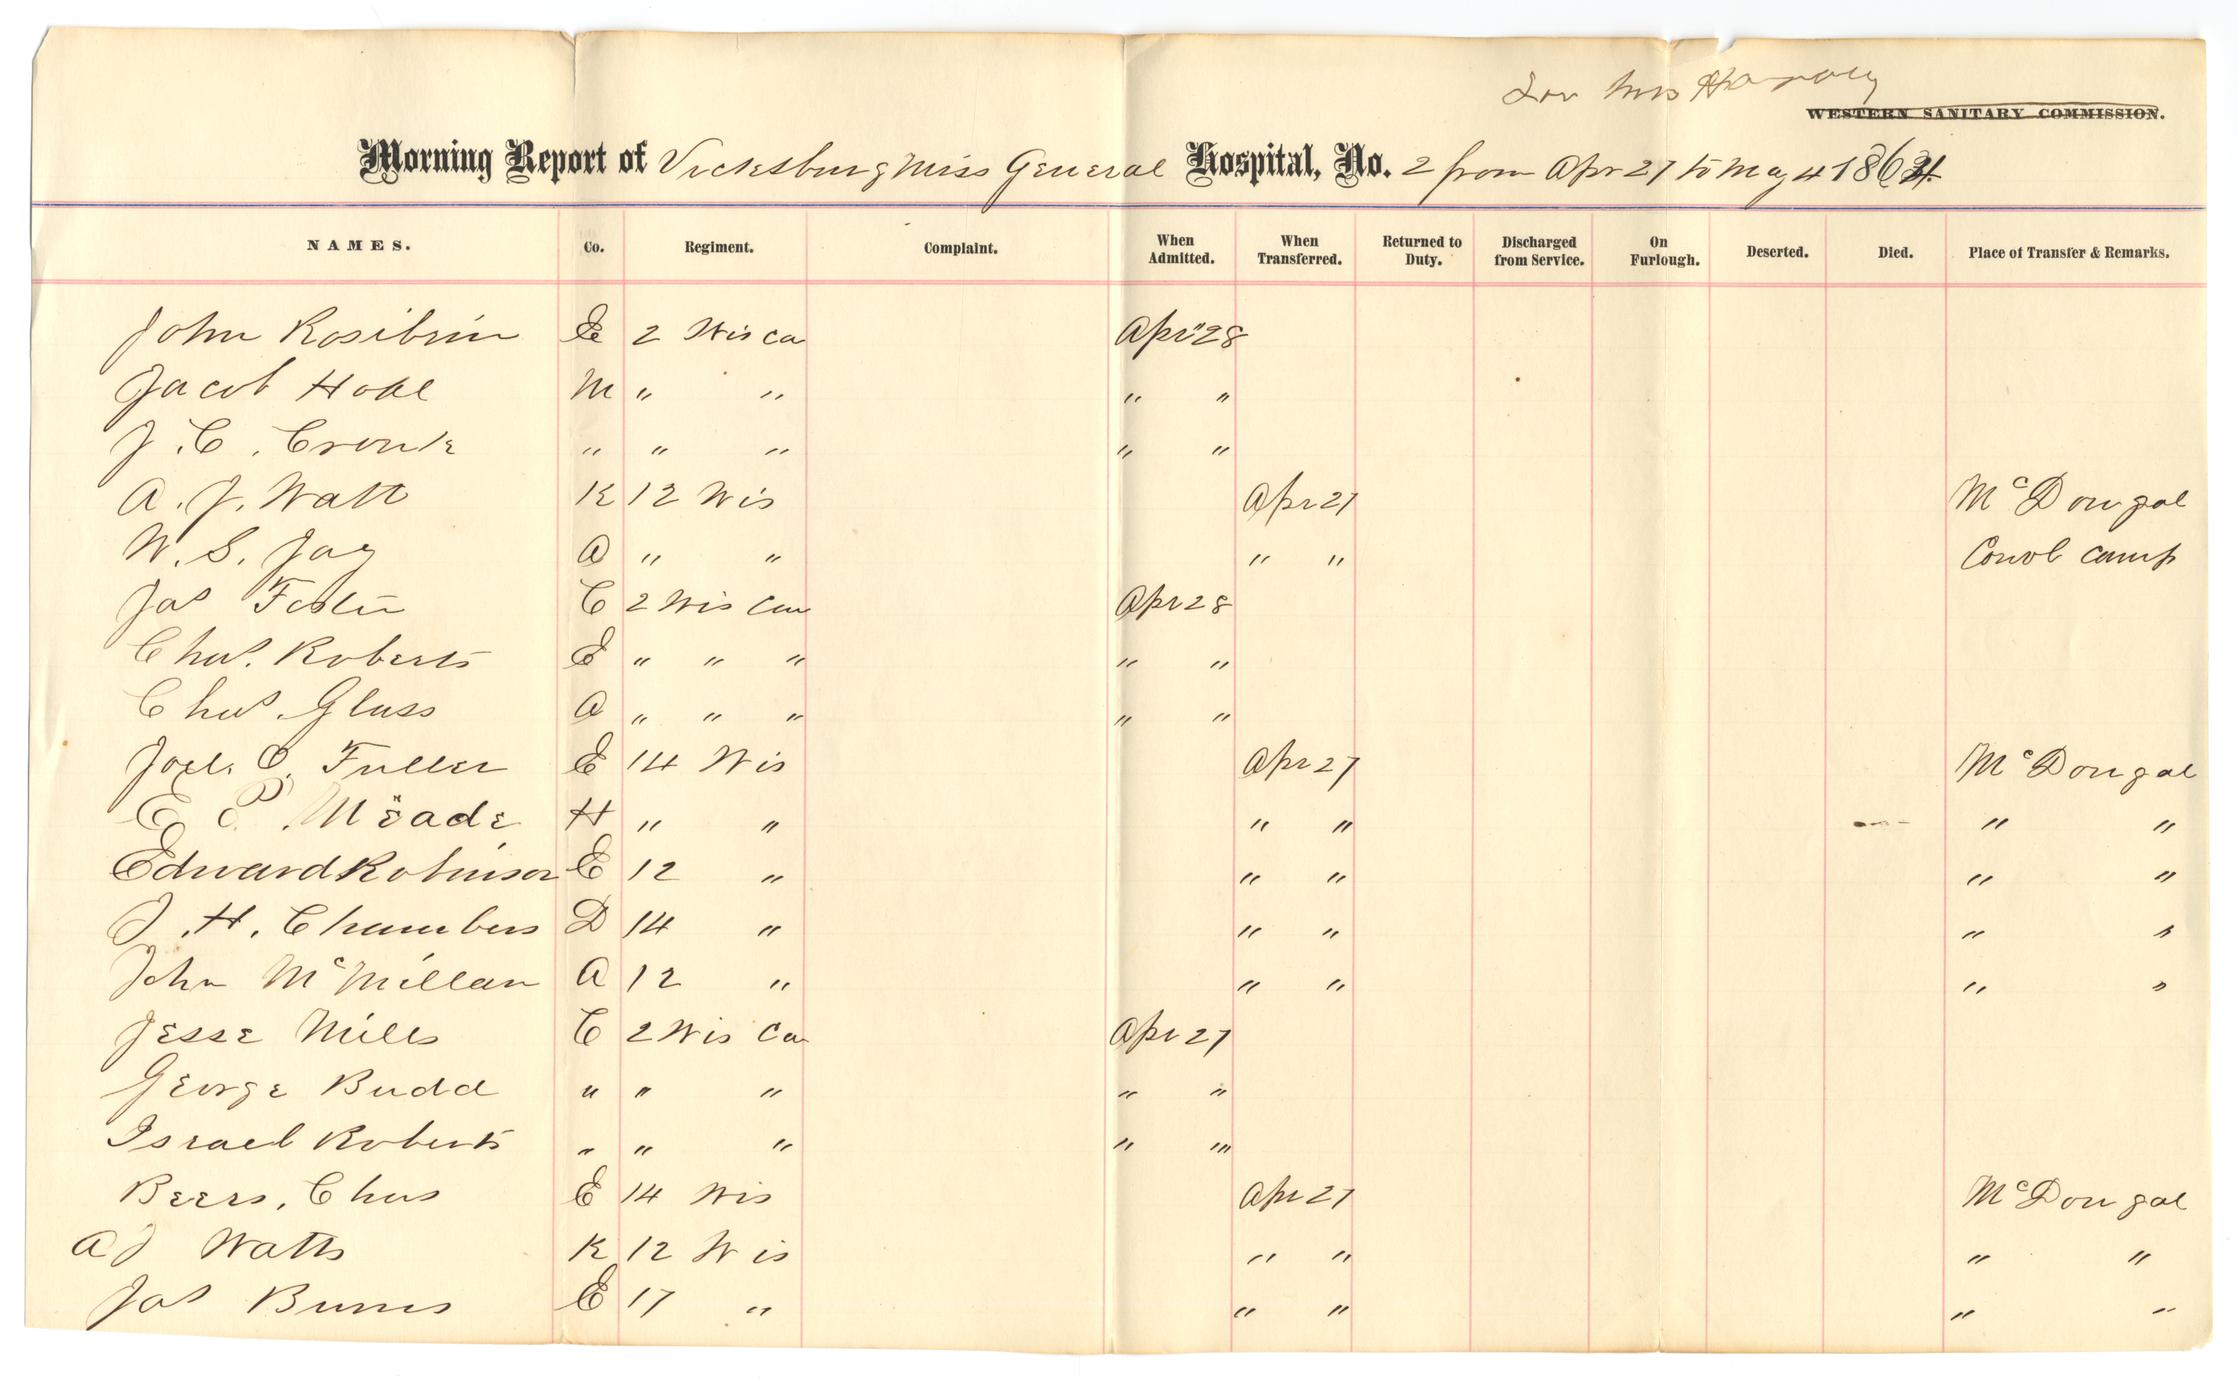 For Mrs Harvey
WESTERN SANITARY COMMISSION.
Morning Report of Vicksburg Miss General Hospital, No. 2 from Apr 27 to May 4 1864
NAMES. Co. Regiment. Complaint. When Admitted. When Transferred. Returned to Duty. Discharged from Service. On Furlough. Deserted. Died. Place of Transfer & Remarks.
John E 2 Wis Ca Apr 28
Jacob M " " " "
J. C. Cronk " " " " "
A. J. Watt K 12 Wis Apr 27 McDougal
W. S. Jay A " " " " Camp
Jas Foster C 2 Wis Cav Apr 28
Chas. Roberts E " " " " "
Chas. Glass A " " " " "
Joel. O. Fuller E 14 Wis Apr 27 McDougal
E P. Meade H " " " " " "
Edward Robinson E 12 " " " " "
J. H. Chambers D 14 " " " " "
John McMillan A 12 " " " " "
Jesse Mills C 2 Wis Ca Apr 27
George Budd " " " " "
Israel Roberts " " " " "
Beers, Chas E 14 Wis Apr 27 McDougal
A J Watts K 12 Wis " " " "
Jas Burns E 17 " " " " "